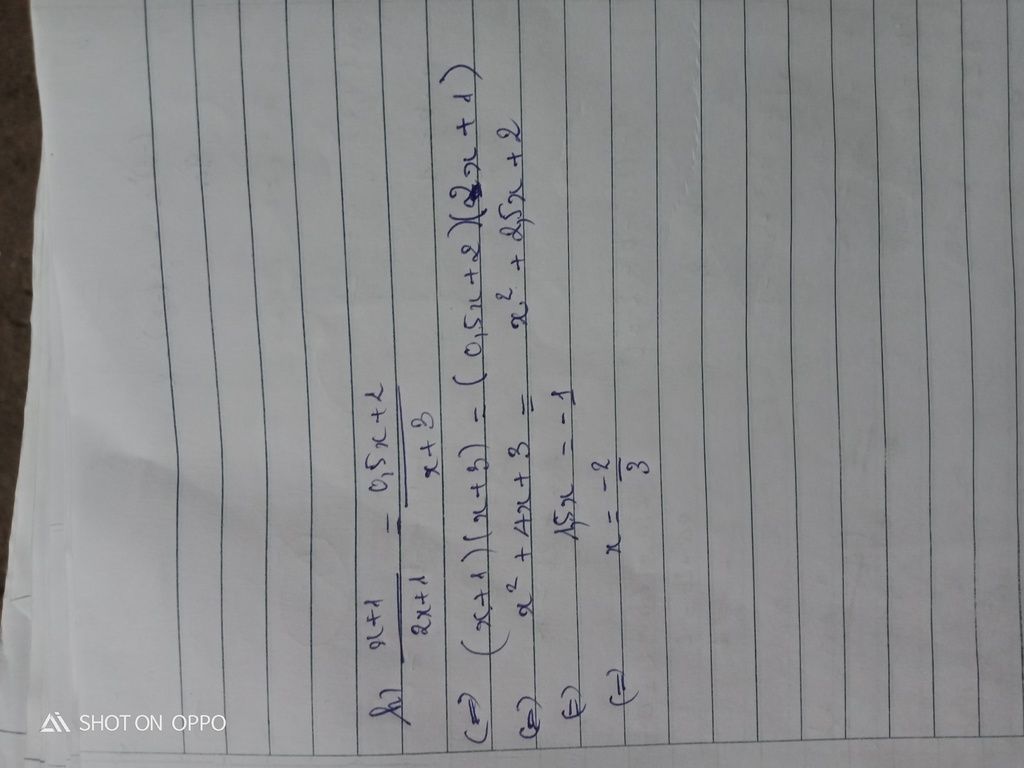 b) x+1/2x+1 = 0,5x+2/x+3
(=) (x+1)(x+3) = (0,5x+2)(2x+1)
(=) x² + 4x+3 = x² + 2,5x+2
(=) 1,5x = -1
(=) x = -2/3
SHOT ON OPPO